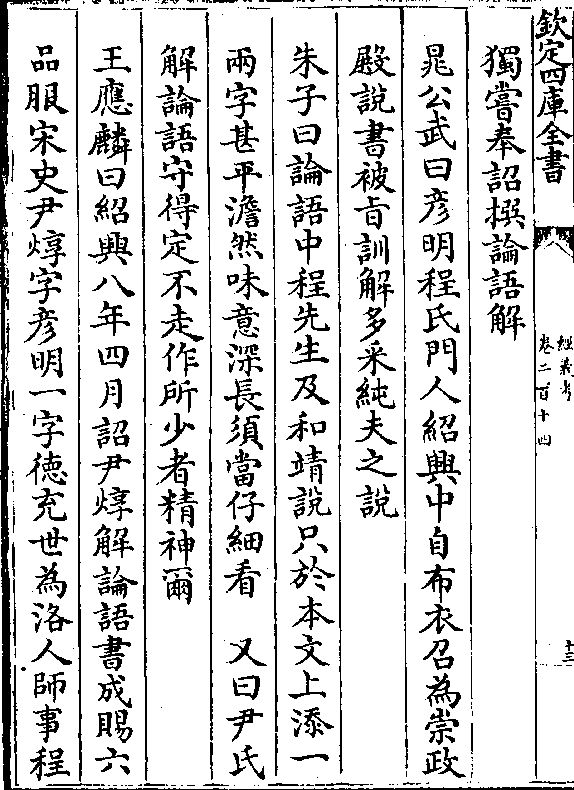 欽定四庫全書
經義考
卷二百十四
十三
獨嘗奉詔撰論語解
晁公武曰彦明程氏門人紹興中自布衣召為崇政
殿說書被旨訓解多采純夫之說
朱子曰論語中程先生及和靖說只於本文上添一
兩字甚平澹然味意深長須當仔細看　又曰尹氏
解論語守得定不走作所少者精神爾
王應麟曰紹興八年四月詔尹焞解論語書成賜六
品服宋史尹焞字彦明一字徳充世為洛人師事程